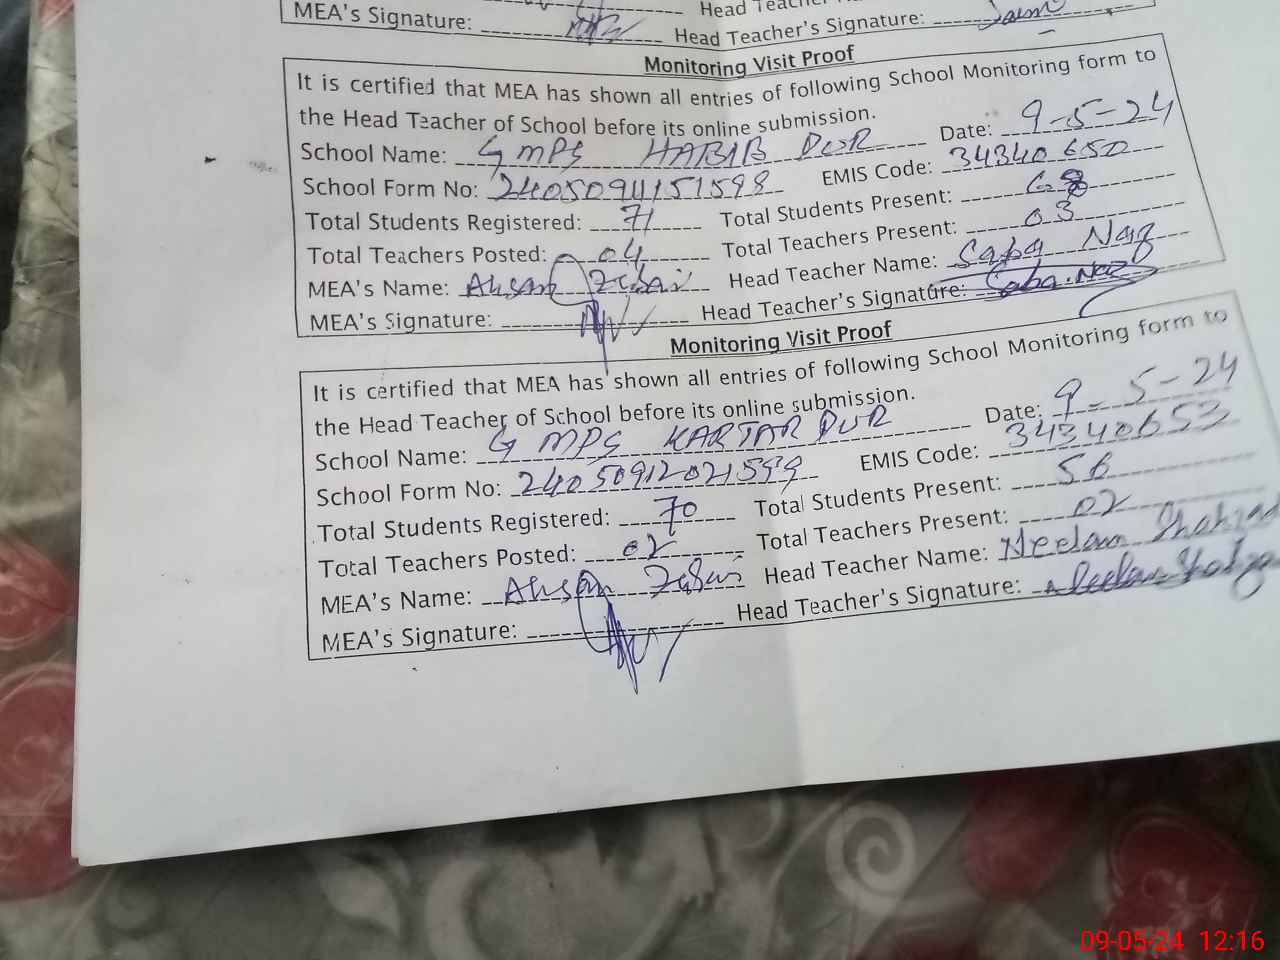 Head Teacher
MEA's Signature: Head Teacher's Signature:
Monitoring Visit Proof
It is certified that MEA has shown all entries of following School Monitoring form to
the Head Teacher of School before its online submission.
School Name: GMPS HABIB PUR Date: 9-5-24
School Form No: 2405094151598 EMIS Code: 34340650
Total Students Registered: 71 Total Students Present: 68
Total Teachers Posted: 04 Total Teachers Present: 03
MEA's Name: Ahsan Zubair Head Teacher Name: Saba Naz
MEA's Signature: Head Teacher's Signature: Saba Naz
Monitoring Visit Proof
It is certified that MEA has shown all entries of following School Monitoring form to
the Head Teacher of School before its online submission.
School Name: GMPS KARTAR PUR Date: 9-5-24
School Form No: 24050912021599 EMIS Code: 34340653
Total Students Registered: 70 Total Students Present: 56
Total Teachers Posted: 02 Total Teachers Present: 02
MEA's Name: Ahsan Zubair Head Teacher Name: Neelam Shahzad
MEA's Signature: Head Teacher's Signature: Neelam
09-05-24 12:16